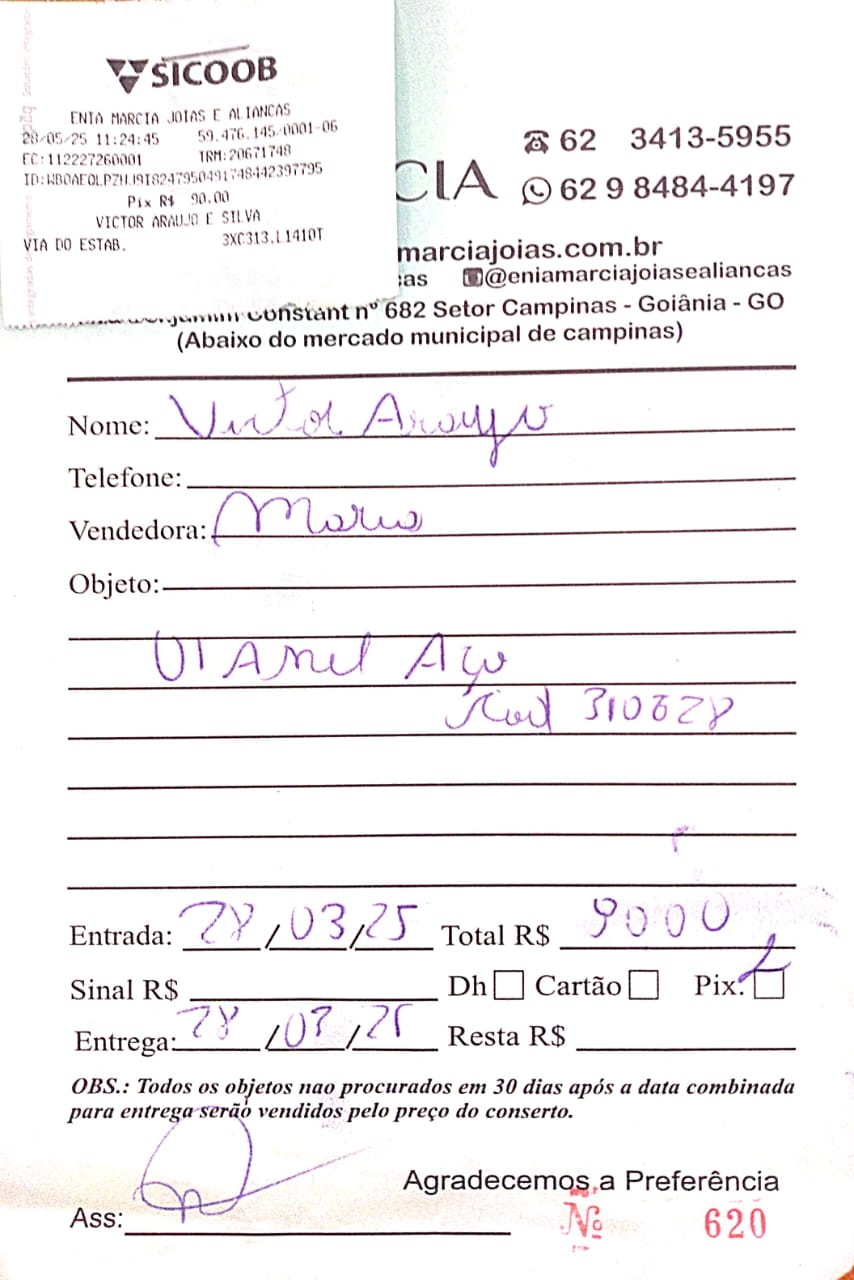 SICOOB
ENIA MARCIA JOIAS E ALIANCAS
28/05/25 11:24:45 59.476.145/0001-06
EC:112227260001 TRM:20671748
Pix R$ 90.00
VICTOR ARAUJO E SILVA
VIA DO ESTAB. 3XC313.L1410T
CIA
62 3413-5955
62 9 8484-4197
marciajoias.com.br
as @eniamarciajoiasealiancas
Constant nº 682 Setor Campinas - Goiânia - GO
(Abaixo do mercado municipal de campinas)
Nome: Victor Araujo
Telefone:
Vendedora: Maria
Objeto:
01 Anel Aço
Cod 310628
Entrada: 28/03/25 Total R$ 9000
Sinal R$ Dh Cartão Pix:
Entrega: 28/03/25 Resta R$
OBS.: Todos os objetos nao procurados em 30 dias após a data combinada
para entrega serão vendidos pelo preço do conserto.
Agradecemos a Preferência
Ass: Nº 620